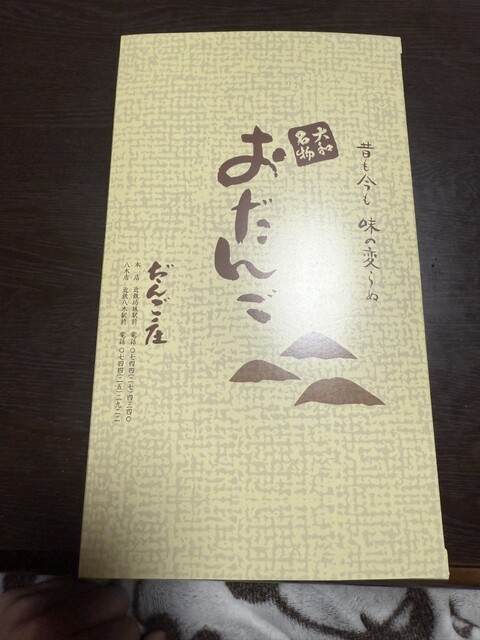 昔も今も 味の変らぬ
大和
名物
おだんご
だんご庄
本店 近鉄坊城駅前 電話〇七四四(二七)四三四〇
八木店 近鉄八木駅前 電話〇七四四(二五)二九二二